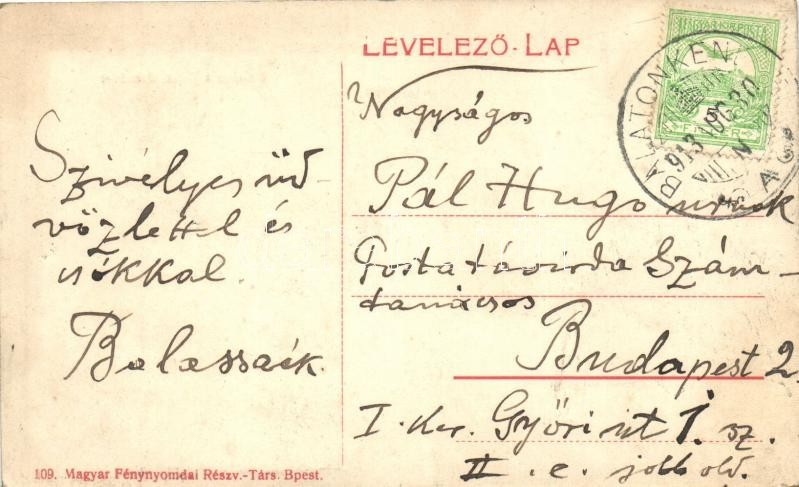 LEVELEZŐ-LAP
MAGYAR KIR. POSTA
BALATONKEN
913 VIII
Szivélyes üd-
vözlettel és
csókkal.
Balassáék.
Nagyságos
Pál Hugo urnak
Posta távirda Szám-
tanácsos
Budapest 2.
I. ker. Győri út 1. sz.
II. e. jobb old.
109. Magyar Fénynyomdai Részv.-Társ. Bpest.